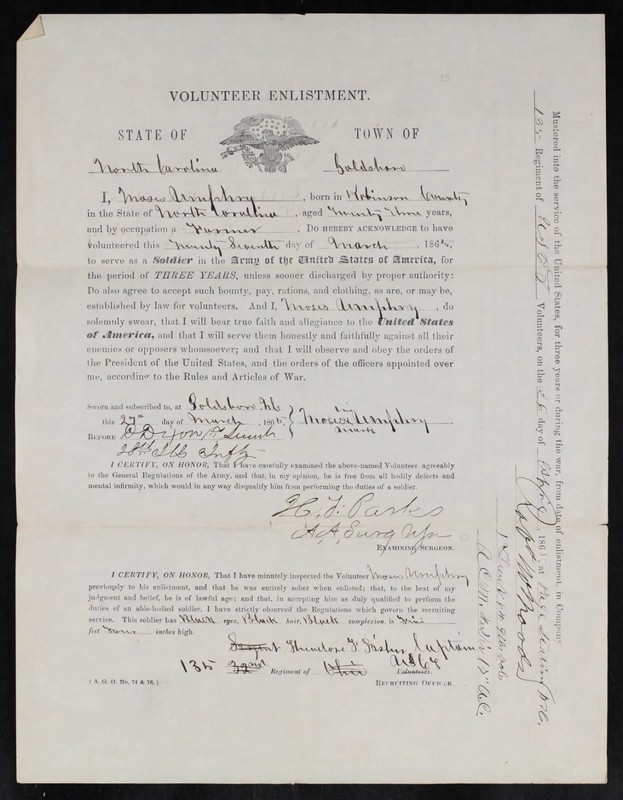 VOLUNTEER ENLISTMENT.
STATE OF TOWN OF
North Carolina Goldsboro
I, Moses Umphry , born in Robinson County
in the State of North Carolina , aged Twenty Three years,
and by occupation a Farmer . Do HEREBY ACKNOWLEDGE to have
volunteered this Twenty Seventh day of March , 1865,
to serve as a Soldier in the Army of the United States of America, for
the period of THREE YEARS, unless sooner discharged by proper authority:
Do also agree to accept such bounty, pay, rations, and clothing, as are, or may be,
established by law for volunteers. And I, Moses Umphry , do
solemnly swear, that I will bear true faith and allegiance to the United States
of America, and that I will serve them honestly and faithfully against all their
enemies or opposers whomsoever; and that I will observe and obey the orders of
the President of the United States, and the orders of the officers appointed over
me, according to the Rules and Articles of War.
Sworn and subscribed to, at Goldsboro N.C.
this 27th day of March , 1865,
his
Moses x Umphry
mark
BEFORE D Dixon 1st Lieut
Infty
I CERTIFY, ON HONOR, That I have carefully examined the above-named Volunteer agreeably
to the General Regulations of the Army, and that, in my opinion, he is free from all bodily defects and
mental infirmity, which would in any way disqualify him from performing the duties of a soldier.
Parkes
A. A. Surg
EXAMINING SURGEON.
I CERTIFY, ON HONOR, That I have minutely inspected the Volunteer Moses Umphry
previously to his enlistment, and that he was entirely sober when enlisted; that, to the best of my
judgment and belief, he is of lawful age; and that, in accepting him as duly qualified to perform the
duties of an able-bodied soldier, I have strictly observed the Regulations which govern the recruiting
service. This soldier has Black eyes, Black hair, Black complexion, is Five
feet Four inches high.
Captain
135 32nd Regiment of Ohio Volunteers,
(A. G. O. No. 74 & 76.) RECRUITING OFFICER.
Mustered into the service of the United States, for three years or during the war, from date of enlistment, in Company
135 Regiment of U.S.C.T. Volunteers, on the day of April , 1865, at Page Station N.C.